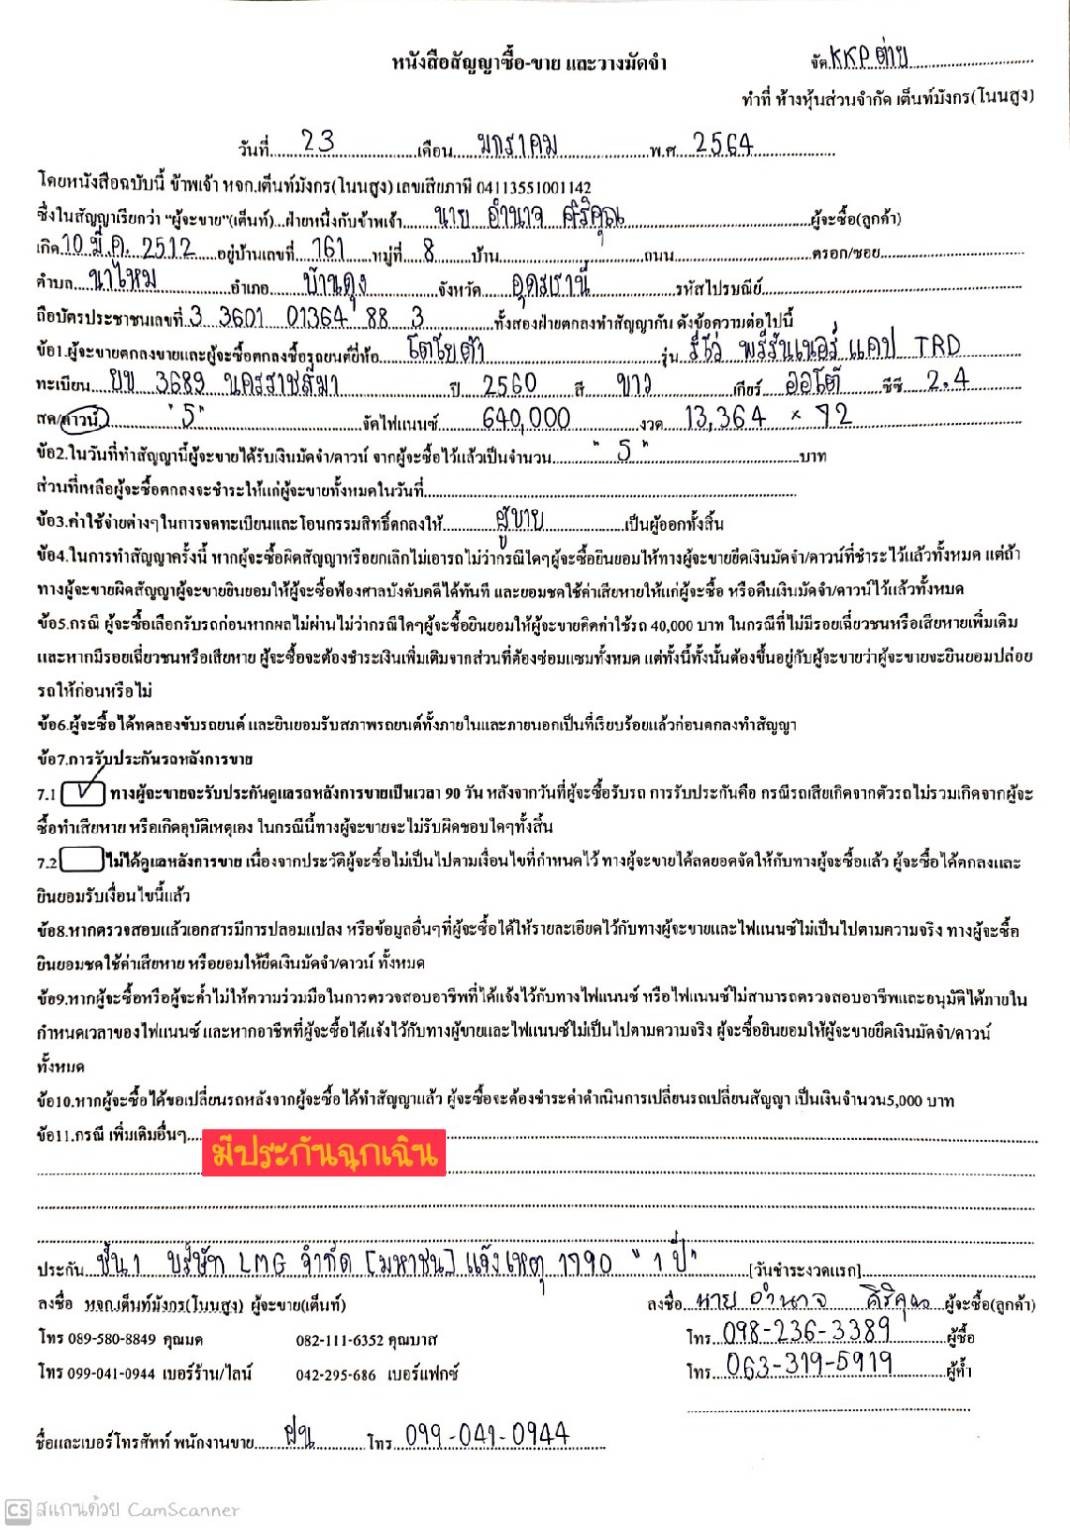 หนังสือสัญญาซื้อ-ขาย และวางมัดจำ
จัด KKP ต่าย
ทำที่ ห้างหุ้นส่วนจำกัด เต็นท์มังกร(โนนสูง)
วันที่ 23 เดือน มกราคม พ.ศ. 2564
โดยหนังสือฉบับนี้ ข้าพเจ้า หจก.เต็นท์มังกร(โนนสูง) เลขเสียภาษี 04113551001142
ซึ่งในสัญญาเรียกว่า "ผู้จะขาย"(เต็นท์)...ฝ่ายหนึ่งกับข้าพเจ้า นาย อำนาจ ศิริคุณ ผู้จะซื้อ(ลูกค้า)
เกิด 10 มี.ค. 2512 อยู่บ้านเลขที่ 161 หมู่ที่ 8 บ้าน ถนน ตรอก/ซอย
ตำบล นาไหม อำเภอ บ้านดุง จังหวัด อุดรธานี รหัสไปรษณีย์
ถือบัตรประชาชนเลขที่ 3 3601 01364 88 3 ทั้งสองฝ่ายตกลงทำสัญญากัน ดังข้อความต่อไปนี้
ข้อ1.ผู้จะขายตกลงขายและผู้จะซื้อตกลงซื้อรถยนต์ยี่ห้อ โตโยต้า รุ่น รีโว่ พรีรันเนอร์ แคป TRD
ทะเบียน ยข 3689 นครราชสีมา ปี 2560 สี ขาว เกียร์ ออโต้ ซีซี 2.4
สด/ดาวน์ "5" จัดไฟแนนซ์ 640,000 งวด 13,364 × 72
ข้อ2.ในวันที่ทำสัญญานี้ผู้จะขายได้รับเงินมัดจำ/ดาวน์ จากผู้จะซื้อไว้แล้วเป็นจำนวน "5" บาท
ส่วนที่เหลือผู้จะซื้อตกลงจะชำระให้แก่ผู้จะขายทั้งหมดในวันที่
ข้อ3.ค่าใช้จ่ายต่างๆในการจดทะเบียนและโอนกรรมสิทธิ์ตกลงให้ ผู้ขาย เป็นผู้ออกทั้งสิ้น
ข้อ4.ในการทำสัญญาครั้งนี้ หากผู้จะซื้อผิดสัญญาหรือยกเลิกไม่เอารถไม่ว่ากรณีใดๆผู้จะซื้อยินยอมให้ทางผู้จะขายยึดเงินมัดจำ/ดาวน์ที่ชำระไว้แล้วทั้งหมด แต่ถ้า
ทางผู้จะขายผิดสัญญาผู้จะขายยินยอมให้ผู้จะซื้อฟ้องศาลบังคับคดีได้ทันที และยอมชดใช้ค่าเสียหายให้แก่ผู้จะซื้อ หรือคืนเงินมัดจำ/ดาวน์ไว้แล้วทั้งหมด
ข้อ5.กรณี ผู้จะซื้อเลือกรับรถก่อนหากผลไม่ผ่านไม่ว่ากรณีใดๆผู้จะซื้อยินยอมให้ผู้จะขายคิดค่าใช้รถ 40,000 บาท ในกรณีที่ไม่มีรอยเฉี่ยวชนหรือเสียหายเพิ่มเติม
และหากมีรอยเฉี่ยวชนหรือเสียหาย ผู้จะซื้อจะต้องชำระเงินเพิ่มเติมจากส่วนที่ต้องซ่อมแซมทั้งหมด แต่ทั้งนี้ทั้งนั้นต้องขึ้นอยู่กับผู้จะขายว่าผู้จะขายจะยินยอมปล่อย
รถให้ก่อนหรือไม่
ข้อ6.ผู้จะซื้อได้ทดลองขับรถยนต์ และยินยอมรับสภาพรถยนต์ทั้งภายในและภายนอกเป็นที่เรียบร้อยแล้วก่อนตกลงทำสัญญา
ข้อ7.การรับประกันรถหลังการขาย
7.1 ✓ ทางผู้จะขายจะรับประกันดูแลรถหลังการขายเป็นเวลา 90 วัน หลังจากวันที่ผู้จะซื้อรับรถ การรับประกันคือ กรณีรถเสียเกิดจากตัวรถไม่รวมเกิดจากผู้จะ
ซื้อทำเสียหาย หรือเกิดอุบัติเหตุเอง ในกรณีนี้ทางผู้จะขายจะไม่รับผิดชอบใดๆทั้งสิ้น
7.2 ไม่ได้ดูแลหลังการขาย เนื่องจากประวัติผู้จะซื้อไม่เป็นไปตามเงื่อนไขที่กำหนดไว้ ทางผู้จะขายได้ลดยอดจัดให้กับทางผู้จะซื้อแล้ว ผู้จะซื้อได้ตกลงและ
ยินยอมรับเงื่อนไขนี้แล้ว
ข้อ8.หากตรวจสอบแล้วเอกสารมีการปลอมแปลง หรือข้อมูลอื่นๆที่ผู้จะซื้อได้ให้รายละเอียดไว้กับทางผู้จะขายและไฟแนนซ์ไม่เป็นไปตามความจริง ทางผู้จะซื้อ
ยินยอมชดใช้ค่าเสียหาย หรือยอมให้ยึดเงินมัดจำ/ดาวน์ ทั้งหมด
ข้อ9.หากผู้จะซื้อหรือผู้จะค้ำไม่ให้ความร่วมมือในการตรวจสอบอาชีพที่ได้แจ้งไว้กับทางไฟแนนซ์ หรือไฟแนนซ์ไม่สามารถตรวจสอบอาชีพและอนุมัติได้ภายใน
กำหนดเวลาของไฟแนนซ์ และหากอาชีพที่ผู้จะซื้อได้แจ้งไว้กับทางผู้ขายและไฟแนนซ์ไม่เป็นไปตามความจริง ผู้จะซื้อยินยอมให้ผู้จะขายยึดเงินมัดจำ/ดาวน์
ทั้งหมด
ข้อ10.หากผู้จะซื้อได้ขอเปลี่ยนรถหลังจากผู้จะซื้อได้ทำสัญญาแล้ว ผู้จะซื้อจะต้องชำระค่าดำเนินการเปลี่ยนรถเปลี่ยนสัญญา เป็นเงินจำนวน5,000 บาท
ข้อ11.กรณี เพิ่มเติมอื่นๆ
มีประกันฉุกเฉิน
ประกัน ชั้น 1 บริษัท LMG จำกัด [มหาชน] แจ้งเหตุ 1790 "1 ปี" [วันชำระงวดแรก]
ลงชื่อ หจก.เต็นท์มังกร(โนนสูง) ผู้จะขาย(เต็นท์) ลงชื่อ นาย อำนาจ ศิริคุณ ผู้จะซื้อ(ลูกค้า)
โทร 089-580-8849 คุณมด 082-111-6352 คุณบาส โทร. 098-236-3389 ผู้ซื้อ
โทร 099-041-0944 เบอร์ร้าน/ไลน์ 042-295-686 เบอร์แฟกซ์ โทร. 063-319-5919 ผู้ค้ำ
ชื่อและเบอร์โทรศัพท์ พนักงานขาย ฝน โทร 099-041-0944
CS สแกนด้วย CamScanner